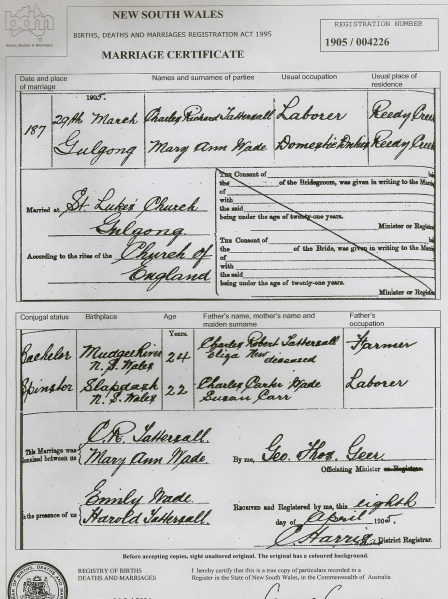 bdm
Births, Deaths & Marriages
NEW SOUTH WALES
BIRTHS, DEATHS AND MARRIAGES REGISTRATION ACT 1995
MARRIAGE CERTIFICATE
REGISTRATION NUMBER
1905 / 004226
Date and place of marriage
Names and surnames of parties
Usual occupation
Usual place of residence
1905.
187
29th March Charles Richard Tattersall Laborer Reedy Cree
Gulgong Mary Ann Wade Domestic Duties Reedy Cree
Married at St Lukes Church
Gulgong.
According to the rites of the Church of
England
THE Consent of
the of the Bridegroom, was given in writing to the Marr
of
with
the said
being under the age of twenty-one years.
Minister or Registr
THE Consent of
the of the Bride, was given in writing to the Marr
of
with
the said
being under the age of twenty-one years.
Minister or Registr
Conjugal status
Birthplace
Age
Father's name, mother's name and maiden surname
Father's occupation
Years.
Bachelor Mudgee River N. S. Wales 24 Charles Robert Tattersall Eliza New deceased Farmer
Spinster Slapdash N. S. Wales 22 Charles Carter Wade Susan Carr Laborer
This Marriage was
between us
C. R. Tattersall.
Mary Ann Wade.
By me, Geo. Thos. Geer.
Officiating Minister or Registrar.
in the presence of us
Emily Wade
Harold Tattersall.
RECEIVED and Registered by me, this eighth
day of April 1905.
C Harris, District Registrar.
Before accepting copies, sight unaltered original. The original has a coloured background.
REGISTRY OF BIRTHS
DEATHS AND MARRIAGES
I hereby certify that this is a true copy of particulars recorded in a
Register in the State of New South Wales, in the Commonwealth of Australia